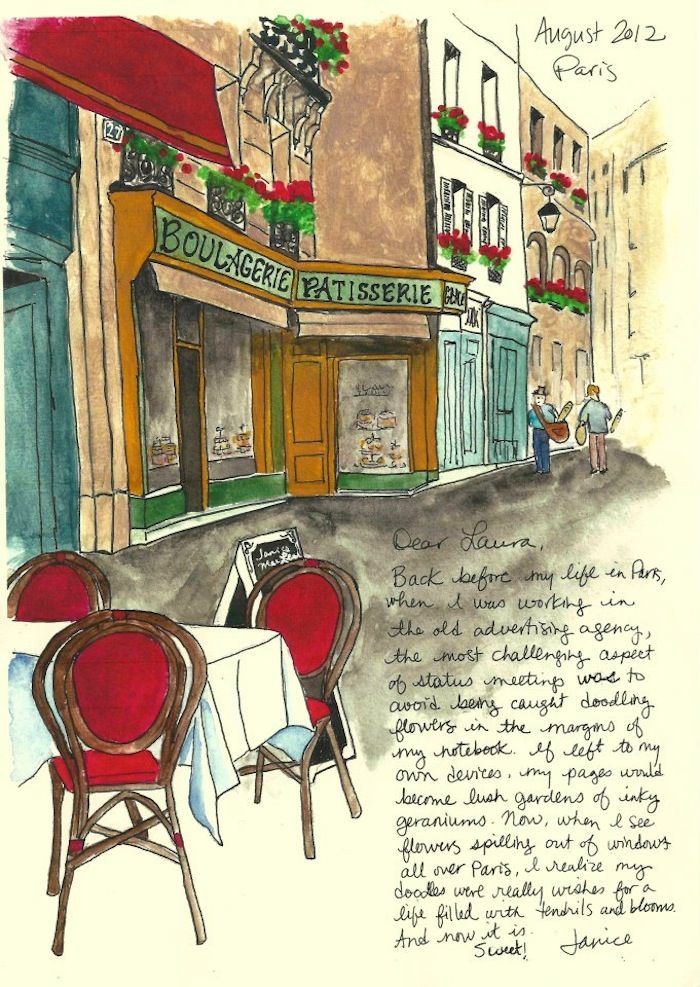 August 2012
Paris
27
BOULAGERIE PATISSERIE
Janice
Dear Laura,
Back before my life in Paris,
when I was working in
the old advertising agency,
the most challenging aspect
of status meetings was to
avoid being caught doodling
flowers in the margins of
my notebook. If left to my
own devices, my pages would
become lush gardens of inky
geraniums. Now, when I see
flowers spilling out of windows
all over Paris, I realize my
doodles were really wishes for a
life filled with tendrils and blooms.
And now it is.
Sweet! Janice